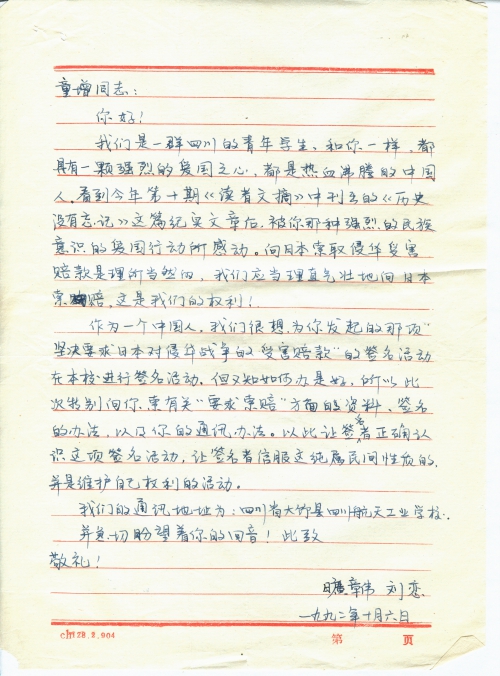 童增同志：
你好！
我们是一群四川的青年学生、和你一样，都
具有一颗强烈的爱国之心，都是热血沸腾的中国
人。看到今年第十期《读者文摘》中刊录的《历史
没有忘记》这篇纪实文章后，被你那种强烈的民族
意识的爱国行动所感动。向日本索取侵华受害
赔款是理所当然的，我们应当理直气壮地向日本
索赔，这是我们的权利！
作为一个中国人，我们很想为你发起的那项“
坚决要求日本对侵华战争的受害赔款”的签名活动
在本校进行签名活动，但又知如何办是好，所以此
次特别向你索有关“要求索赔”方面的资料、签名
的办法，以及你的通讯办法。以此让签名者正确认
识这项签名活动，让签名者信服这纯属民间性质的，
并是维护自己权利的活动。
我们的通讯地址为：四川省大竹县四川航天工业学校.
并急切盼望着你的回音！此致
敬礼！
旷章伟 刘恋
一九九二年十月六日
第 页